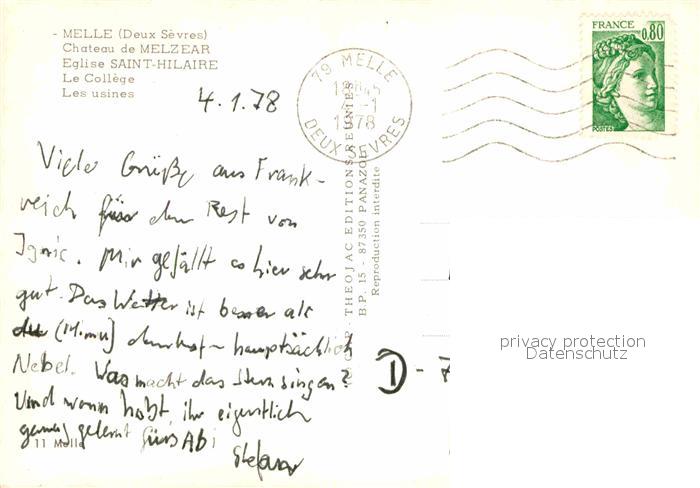 - MELLE (Deux Sèvres)
Chateau de MELZEAR
Eglise SAINT-HILAIRE
Le Collège
Les usines
FRANCE
0,80
POSTES
79 MELLE
4-1
1978
DEUX-SEVRES
4.1.78
Viele Grüße aus Frank-
reich für den Rest von
Mir gefällt es hier sehr
gut. Das Wetter ist besser als
hauptsächlich
Nebel. Was macht das Sternsingen?
Und wann habt ihr eigentlich
genug gelernt fürs Abi
Stefan
11 Melle
THEOJAC EDITIONS REUNIES
B.P. 15 - 87350 PANAZOL
Reproduction interdite
D - 7
privacy protection
Datenschutz